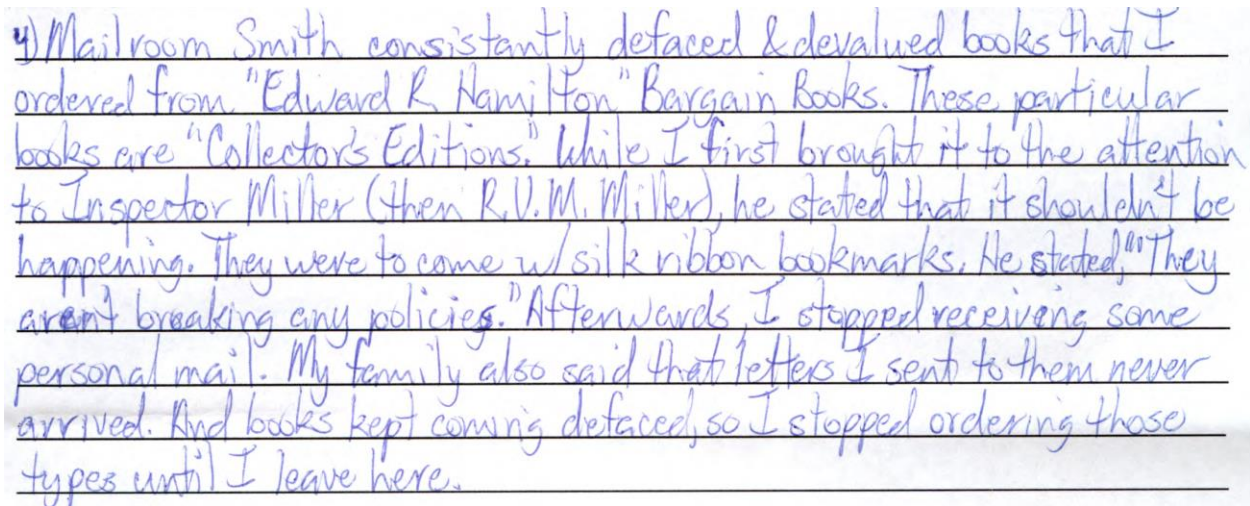 4) Mailroom Smith consistantly defaced & devalued books that I
ordered from "Edward R. Hamilton" Bargain Books. These particular
books are "Collector's Editions." While I first brought it to the attention
to Inspector Miller (then R.U.M. Miller), he stated that it shouldn't be
happening. They were to come w/ silk ribbon bookmarks. He stated, "They
aren't breaking any policies." Afterwards, I stopped receiving some
personal mail. My family also said that letters I sent to them never
arrived. And books kept coming defaced, so I stopped ordering those
types until I leave here.